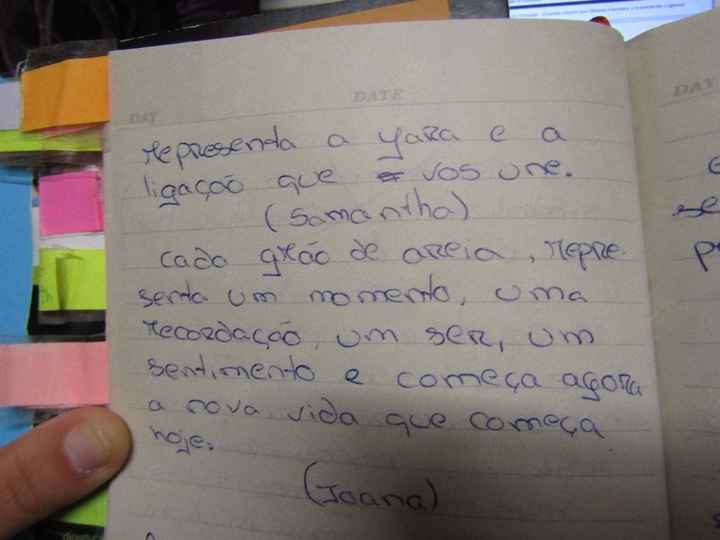 DAY DATE
representa a yara e a
ligação que vos une.
(Samantha)
cada grão de areia, repre-
senta um momento, uma
recordação, um ser, um
sentimento e começa agora
a nova vida que começa
hoje.
(Joana)
DAY